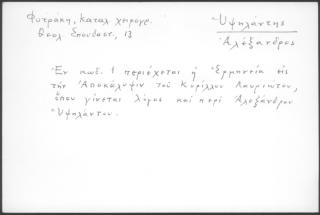 Φυτράκη, Καταλ. χειρογρ.
Θεολ. Σπουδαστ., 13
Ὑψηλάντης
Ἀλέξανδρος
Ἐν κωδ. 1 περιέχεται ἡ Ἑρμηνεία εἰς
τὴν Ἀποκάλυψιν τοῦ Κυρίλλου Λαυριώτου,
ὅπου γίνεται λόγος καὶ περὶ Ἀλεξάνδρου
Ὑψηλάντου.